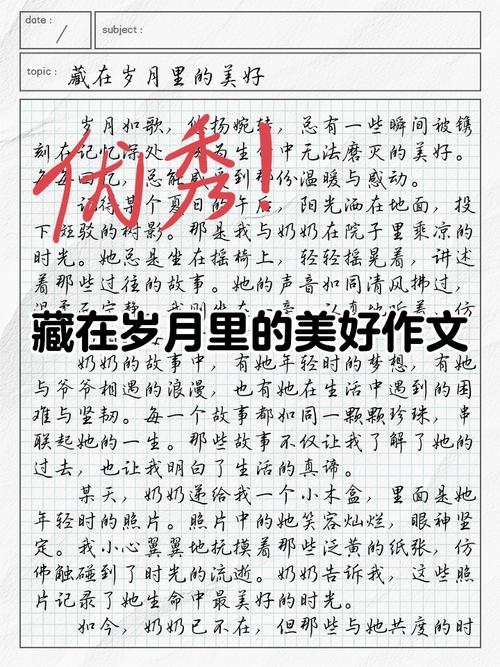 date :
subject :
topic : 藏在岁月里的美好
优秀!
岁月如歌，悠扬婉转，总有一些瞬间被镌
刻在记忆深处，成为生命中无法磨灭的美好。
每每回忆，总能感受到那份温暖与感动。
记得某个夏日的午后，阳光洒在地面，投
下斑驳的树影。那是我与奶奶在院子里乘凉的
时光。她总是坐在摇椅上，轻轻摇晃着，讲述
着那些过往的故事。她的声音如同清风拂过，
藏在岁月里的美好作文
奶奶的故事中，有她年轻时的梦想，有她
与爷爷相遇的浪漫，也有她在生活中遇到的困
难与坚韧。每一个故事都如同一颗颗珍珠，串
联起她的一生。那些故事不仅让我了解了她的
过去，也让我明白了生活的真谛。
某天，奶奶递给我一个小木盒，里面是她
年轻时的照片。照片中的她笑容灿烂，眼神坚
定。我小心翼翼地抚摸着那些泛黄的纸张，仿
佛触碰到了时光的流逝。奶奶告诉我，这些照
片记录了她生命中最美好的时光。
如今，奶奶已不在，但那些与她共度的时